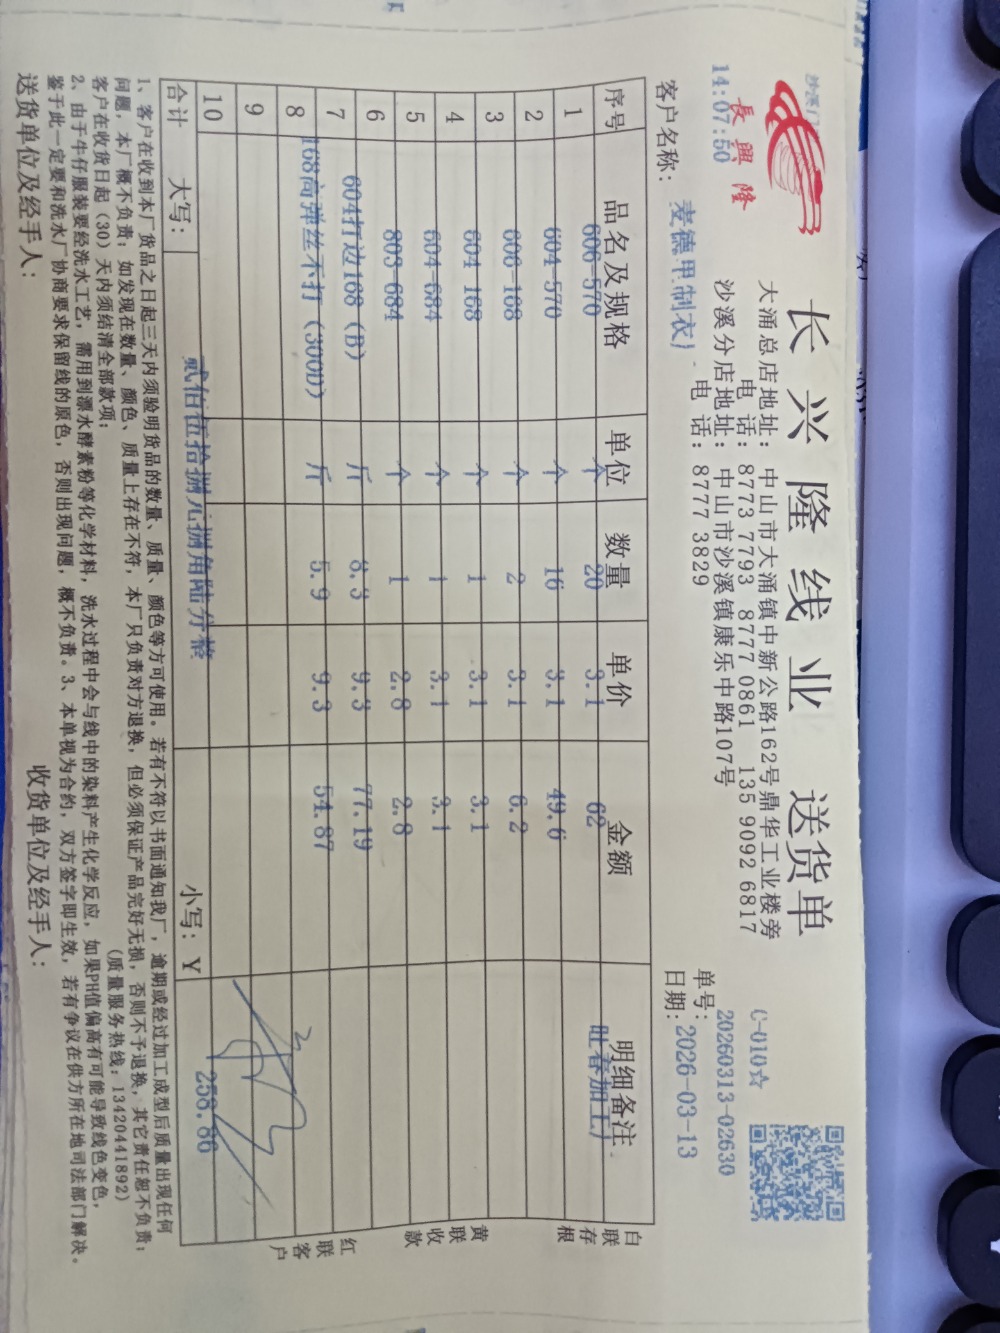 沙溪门
14:07:50
長興隆
长兴隆线业 送货单
大涌总店地址：中山市大涌镇中新公路162号鼎华工业楼旁
电 话：8773 7793 8777 0861 135 9092 6817
沙溪分店地址：中山市沙溪镇康乐中路107号
电 话：8777 3829
C-010☆
单号：20260313-02630
客户名称：麦德甲制衣厂
日期：2026-03-13
序号 品名及规格 单位 数量 单价 金额 明细备注
1 606-570 个 20 3.1 62 旺春加工厂
2 604-570 个 16 3.1 49.6
3 606-168 个 2 3.1 6.2
4 604-168 个 1 3.1 3.1
5 604-684 个 1 3.1 3.1
6 803-684 个 1 2.8 2.8
7 604打边168（B） 斤 8.3 9.3 77.19
8 168高弹丝不打（300D） 斤 5.9 9.3 54.87
9
10
合计 大写：贰佰伍拾捌元捌角陆分整 小写：Y 258.86
白联存根
黄联收款
红联客户
1、客户在收到本厂货品之日起三天内须验明货品的数量、质量、颜色等方可使用。若有不符以书面通知我厂，逾期或经过加工成型后质量出现任何
问题，本厂概不负责；如发现在数量、颜色、质量上存在不符，本厂只负责对方退换，但必须保证产品完好无损，否则不予退换，其它责任恕不负责；
客户在收货日起（30）天内须结清全部款项；
（质量服务热线：13420441892）
2、由于牛仔服装要经洗水工艺，需用到漂水酵素粉等化学材料，洗水过程中会与线中的染料产生化学反应，如果PH值偏高有可能导致线色变色，
鉴于此一定要和洗水厂协商要求保留线的原色，否则出现问题，概不负责。3、本单视为合约，双方签字即生效，若有争议在供方所在地司法部门解决。
送货单位及经手人：
收货单位及经手人：